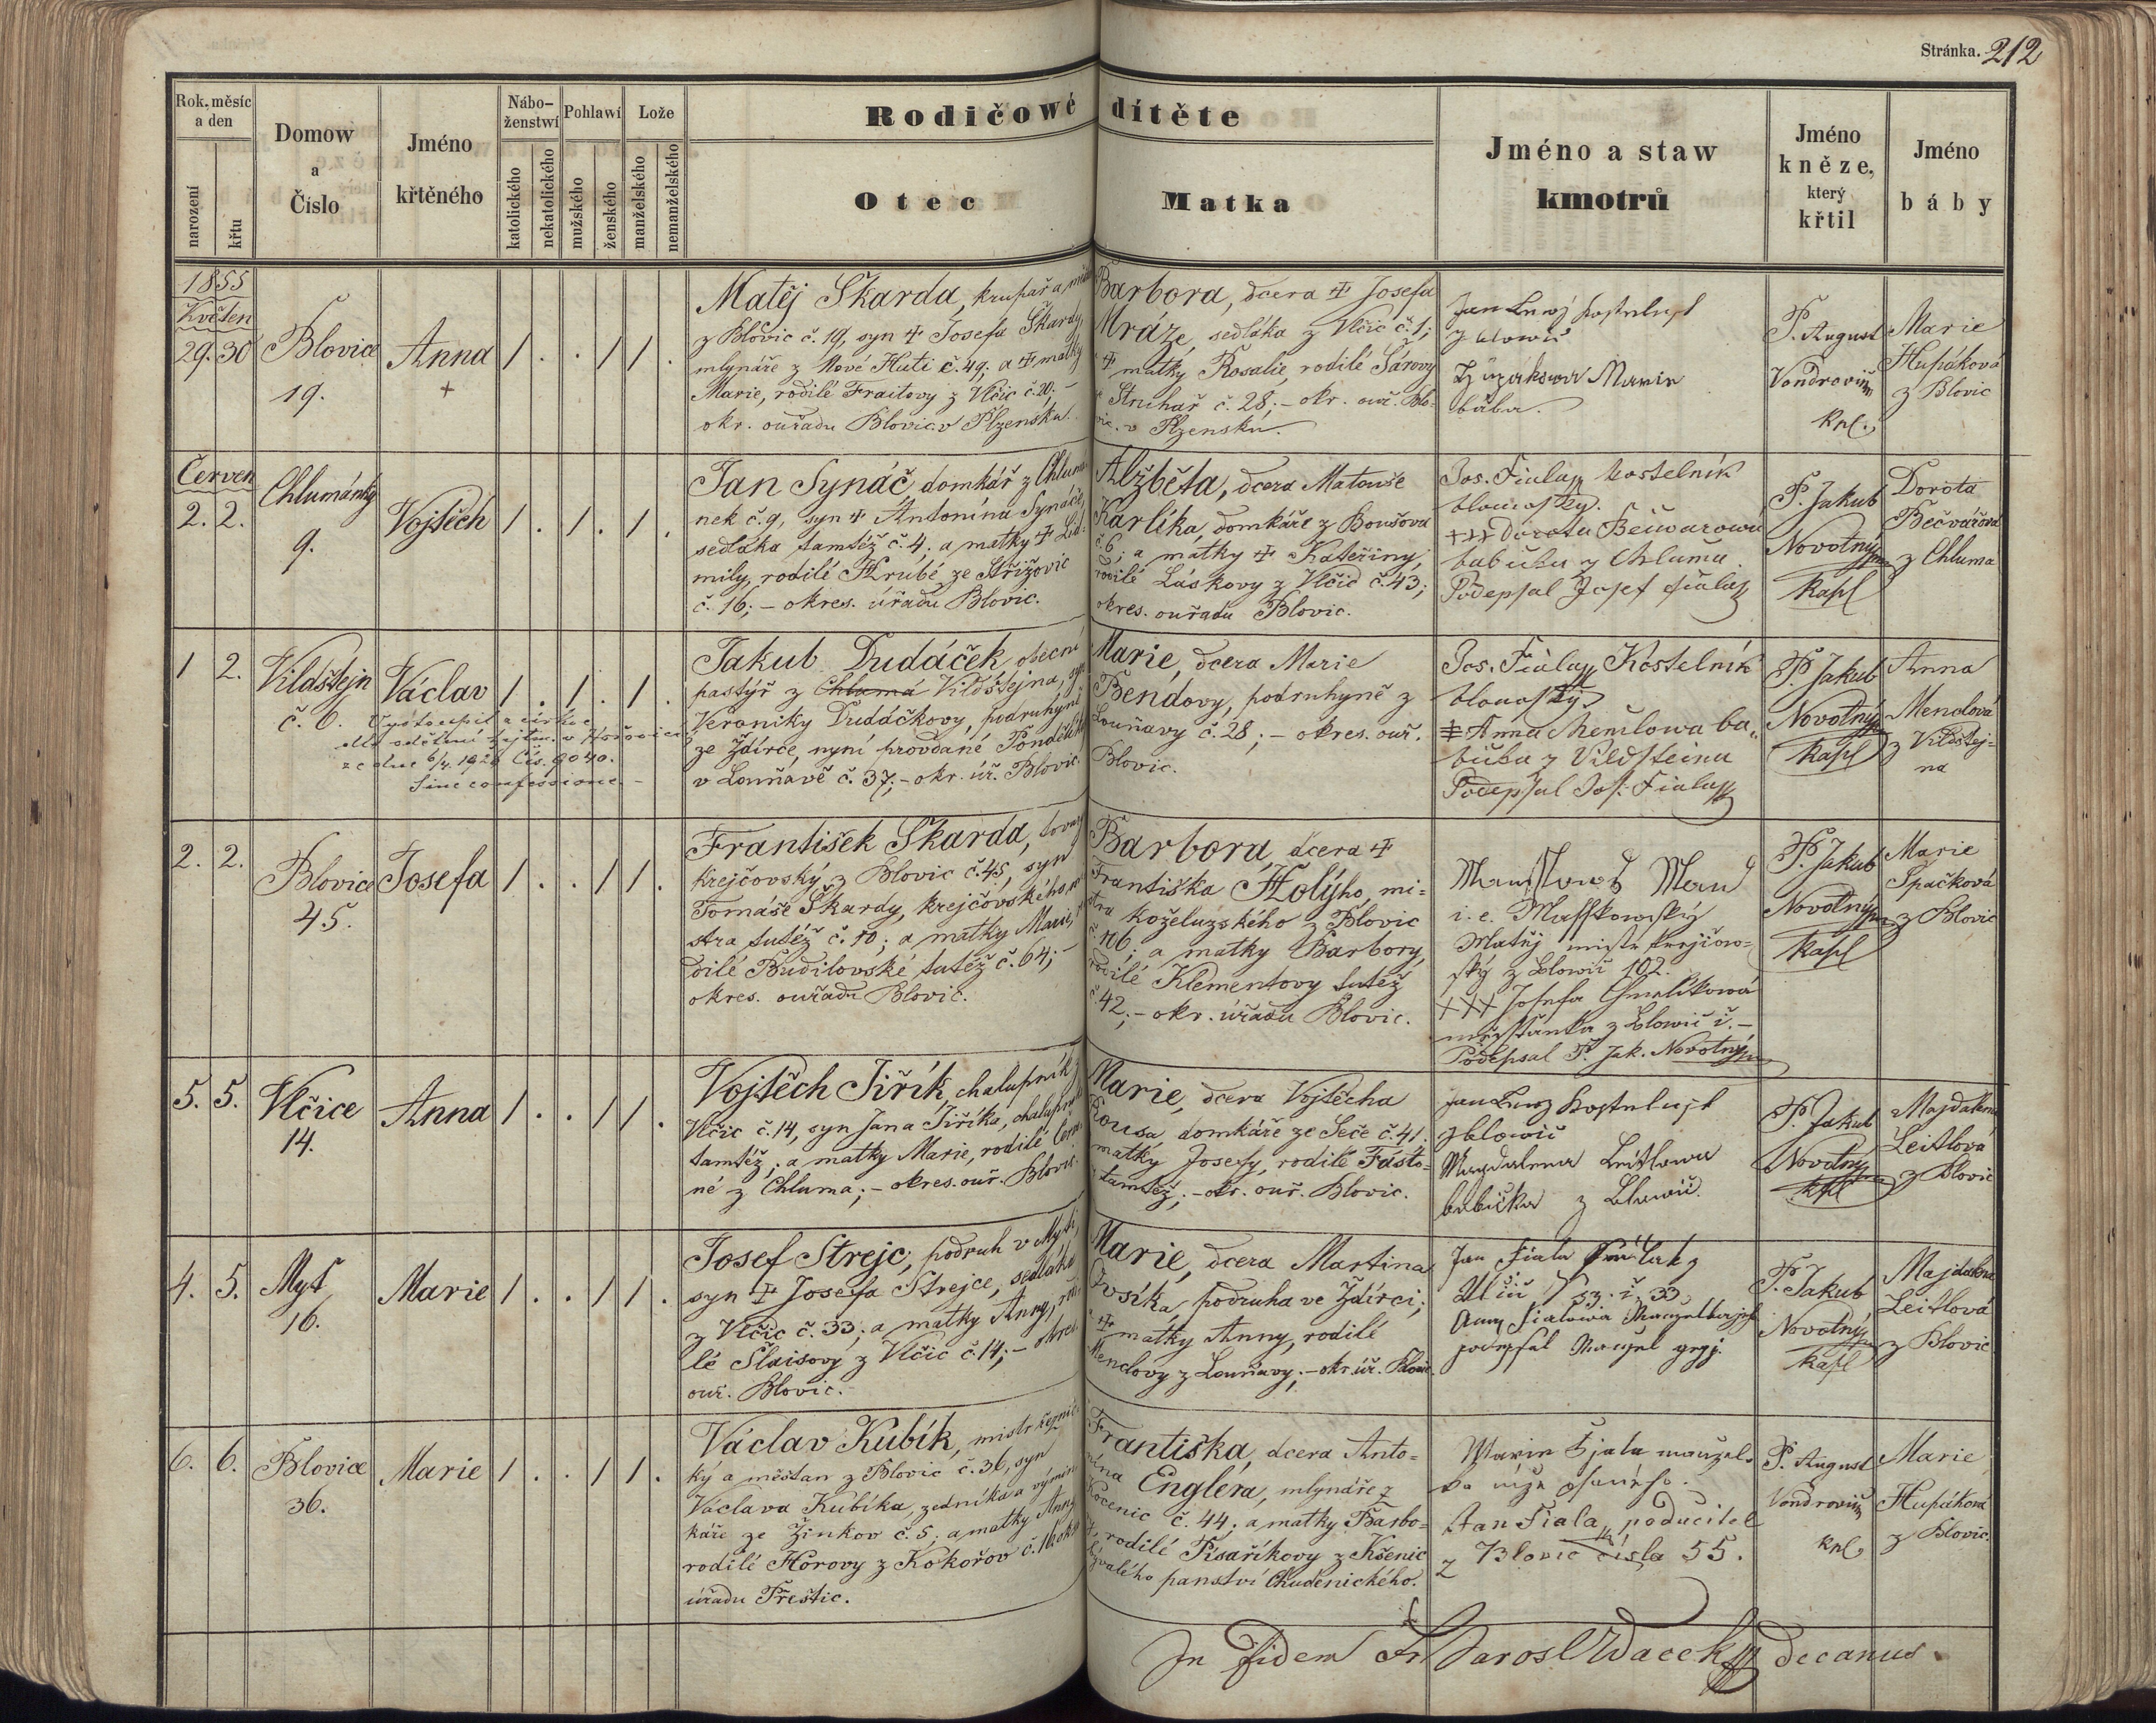 Stránka. 212
Rok, měsíc a den
narození
křtu
Domow a Číslo
Jméno křtěného
Nábo-ženstwí
katolického
nekatolického
Pohlawí
mužského
ženského
Lože
manželského
nemanželského
Rodičowé dítěte
Otec
Matka
Jméno a staw kmotrů
Jméno kněze, který křtil
Jméno báby
1855
Květen
29. 30
Blovice
19.
Anna
+
1 . . 1 1 .
Matěj Škarda, krupař a
z Blovic č. 19, syn ✝ Josefa Škardy,
mlynáře z Nové Huti č. 49; a ✝ matky
Marie, rodilé Fraitovy z Vlčic č. 20; –
okr. ouřadu Blovic. v Plzensku.
Barbora, dcera ✝ Josefa
Mráze, sedláka z Vlčic č. 1;
✝ matky Rosalie, rodilé Šárovy
Struhař č. 28; – okr. ouř. Blo-
vic. v Plzensku.
Marie
bába.
P. August
Vondrovič
kpl.
Marie
Hupáková
z Blovic
Červen
2. 2.
Chlumánky
9.
Vojtěch
1 . 1 . 1 .
Jan Synáč, domkář z Chlumá-
nek č. 9, syn ✝ Antonína Synáče,
sedláka tamtéž č. 4; a matky ✝ Lid-
mily, rodilé Hrubé ze Střížovic
č. 16; – okres. úřadu Blovic.
Alžběta, dcera Matouše
Karlíka, domkáře z Boušova
č. 6; a matky ✝ Kateřiny,
rodilé Láskovy z Vlčic č. 43;
okres. ouřadu Blovic.
Jos. Fiala kostelník
blowoský.
+++ Dorota Bečwarowa
babička z Chluma.
Podepsal Josef Fiala
P. Jakub
Novotný
kapl
Dorota
Bečvářová
z Chluma
1 2.
Vildštejn
č. 6.
Václav
1 . 1 . 1 .
Vystoupil z církve
dle sdělení hejtm. v Hořovicích
ze dne 6/4. 1921 Čís. 9040.
Sine confessione. –
Jakub Dudáček, obecní
pastýř z Chluma Vildštejna, syn
Veroniky Dudáčkovy, podruhyně
ze Ždírce, nyní provdané
v Louňavě č. 37; – okr. úř. Blovic.
Marie, dcera Marie
Bendovy, podruhyně z
Louňavy č. 28; – okres. ouř.
Blovic.
Jos. Fiala Kostelník
blowoský.
Anna Menclowa ba-
bička z Vildsteina
Podepsal Jos. Fiala
P. Jakub
Novotný
kapl
Anna
Menclová
z Vildštej-
na
2. 2.
Blovice
45.
Josefa
1 . . 1 1 .
František Škarda, tovaryš
krejčovský z Blovic č. 45, syn
Tomáše Škardy, krejčovského mi-
stra tutéž č. 10; a matky Marie, ro-
dilé Budilovské tutéž č. 64; –
okres. ouřadu Blovic.
Barbora, dcera ✝
Františka Holýho, mi-
stra koželužského z Blovic
č. 106; a matky Barbory,
rodilé Klementovy tutéž
č. 42; – okr. úřadu Blovic.
i. e.
Matěj mistr krejčow-
ský z Blowic 102.
+++ Josefa Chmelíkowá
měšťanka z Blowic č. –
Podepsal P. Jak. Novotný
P. Jakub
Novotný
kapl
Marie
Špačková
z Blovic
5. 5.
Vlčice
14.
Anna
1 . . 1 1 .
Vojtěch Jiřík, chalupník z
Vlčic č. 14, syn Jana Jiříka, chalupníka
tamtéž; a matky Marie, rodilé
né z Chluma; – okres. ouř. Blovic.
Marie, dcera Vojtěcha
Kousa, domkáře ze Seče č. 41.
matky Josefy, rodilé Fásto-
tamtéž; – okr. ouř. Blovic.
z Blowic
Magdalena Leitlowa
babička z Blowic.
P. Jakub
Novotný
kpl
Majdalena
Leitlová
z Blovic
4. 5.
Myť
16.
Marie
1 . . 1 1 .
Josef Strejc, podruh v Myti,
syn ✝ Josefa Strejce, sedláka
z Vlčic č. 33; a matky Anny, rodi-
lé Slaisovy z Vlčic č. 14; – okres.
ouř. Blovic.
Marie, dcera Martina
podruha ve Ždírci;
✝ matky Anny, rodilé
Menclovy z Louňavy; – okr. úř. Blovic.
Jan Fiala
33
Anna Fialowa
P. Jakub
Novotný
kapl
Majdalena
Leitlová
z Blovic
6. 6.
Blovice
36.
Marie
1 . . 1 1 .
Václav Kubík, mistr řeznic-
ký a měšťan z Blovic č. 36, syn
Václava Kubíka, zedníka a výmin-
káře ze Žinkov č. 5; a matky Anny,
rodilé Horovy z Kokořov č. 16; okr.
úřadu Přeštic.
Františka, dcera Anto-
nína Englera, mlynáře z
Kocenic č. 44; a matky Barbo-
ry, rodilé Písaříkovy z Kšenic
bývalého panství Chudenického.
Marie Fiala manžel-
ka níže psaného.
Jan Fiala, poducitel
z Blovic čísla 55.
P. August
Vondrovič
kpl.
Marie
Hupáková
z Blovic.
In fidem Fr. Jarosl. Vacek decanus.